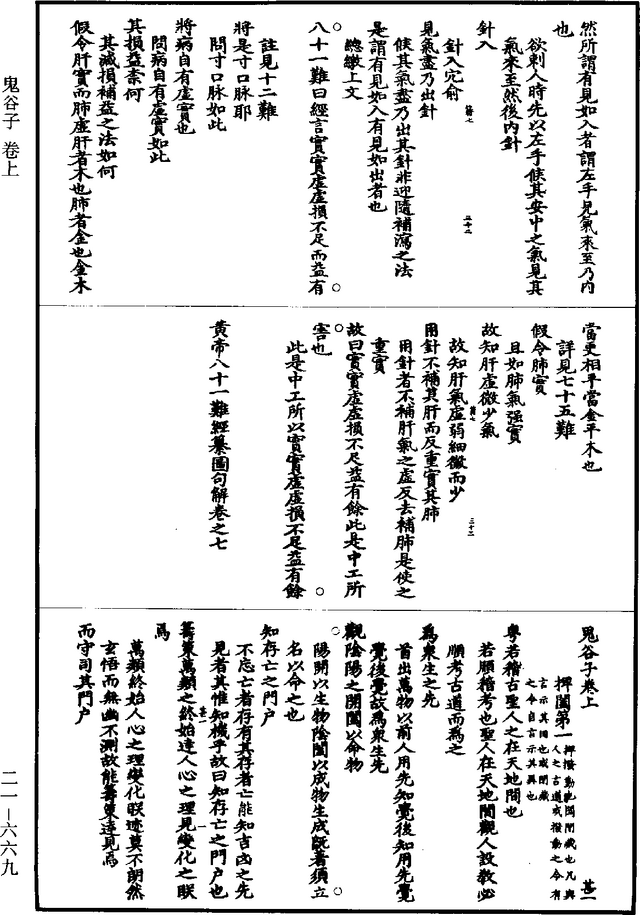 鬼谷子 卷上
二一－六六九
然所謂有見如入者謂左手見氣來至乃內
也
欲刺人時先以左手候其安中之氣見其
氣來至然後內針
針入
針入穴俞
見氣盡乃出針
候其氣盡乃出其針非迎隨補瀉之法
是謂有見如入有見如出者也
總繳上文
八十一難曰經言實實虛虛損不足而益有
註見十二難
將是寸口脉耶
問寸口脉如此
將病自有虛實也
問病自有虛實如此
其損益柰何
其減損補益之法如何
假令肝實而肺虛肝者木也肺者金也金木
當更相平當金平木也
詳見七十五難
假令肺實
且如肺氣强實
故知肝虛微少氣
故知肝氣虛弱細微而少
用針不補其肝而反重實其肺
用針者不補肝氣之虛反去補肺是使之
重實
故曰實實虛虛損不足益有餘此是中工所
害也
此是中工所以實實虛虛損不足益有餘
黃帝八十一難經纂圖句解卷之七
鬼谷子卷上
捭闔第一
捭撥動也闔閉藏也凡與
人之言道或撥動之令有
言示其同也或閉藏
之令自言示其異也
粤若稽古聖人之在天地間也
若順稽考也聖人在天地間觀人設教必
順考古道而爲之
爲衆生之先
首出萬物以前人用先知覺後知用先覺
覺後覺故爲衆生先
觀陰陽之開闔以命物
陽開以生物陰闔以成物生成旣著須立
名以命之也
知存亡之門户
不忘亡者存有其存者亡能知吉凶之先
見者其惟知機乎故曰知存亡之門户也
籌策萬類之終始達人心之理見變化之朕
焉
萬類終始人心之理變化朕迹莫不朗然
玄悟而無幽不測故能籌策達見焉
而守司其門户